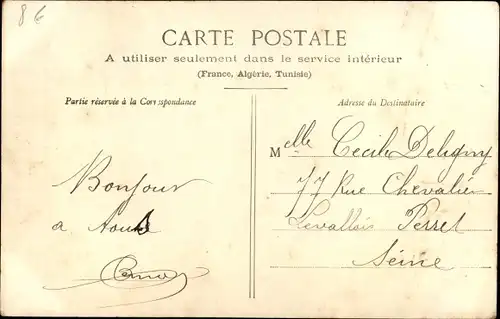 8 €
CARTE POSTALE
A utiliser seulement dans le service intérieur
(France, Algérie, Tunisie)
Partie réservée à la Correspondance
Adresse du Destinataire
Melle Cecile Deligny
77 Rue Chevalier
Levallois Perret
Seine
Bonjour
a tous